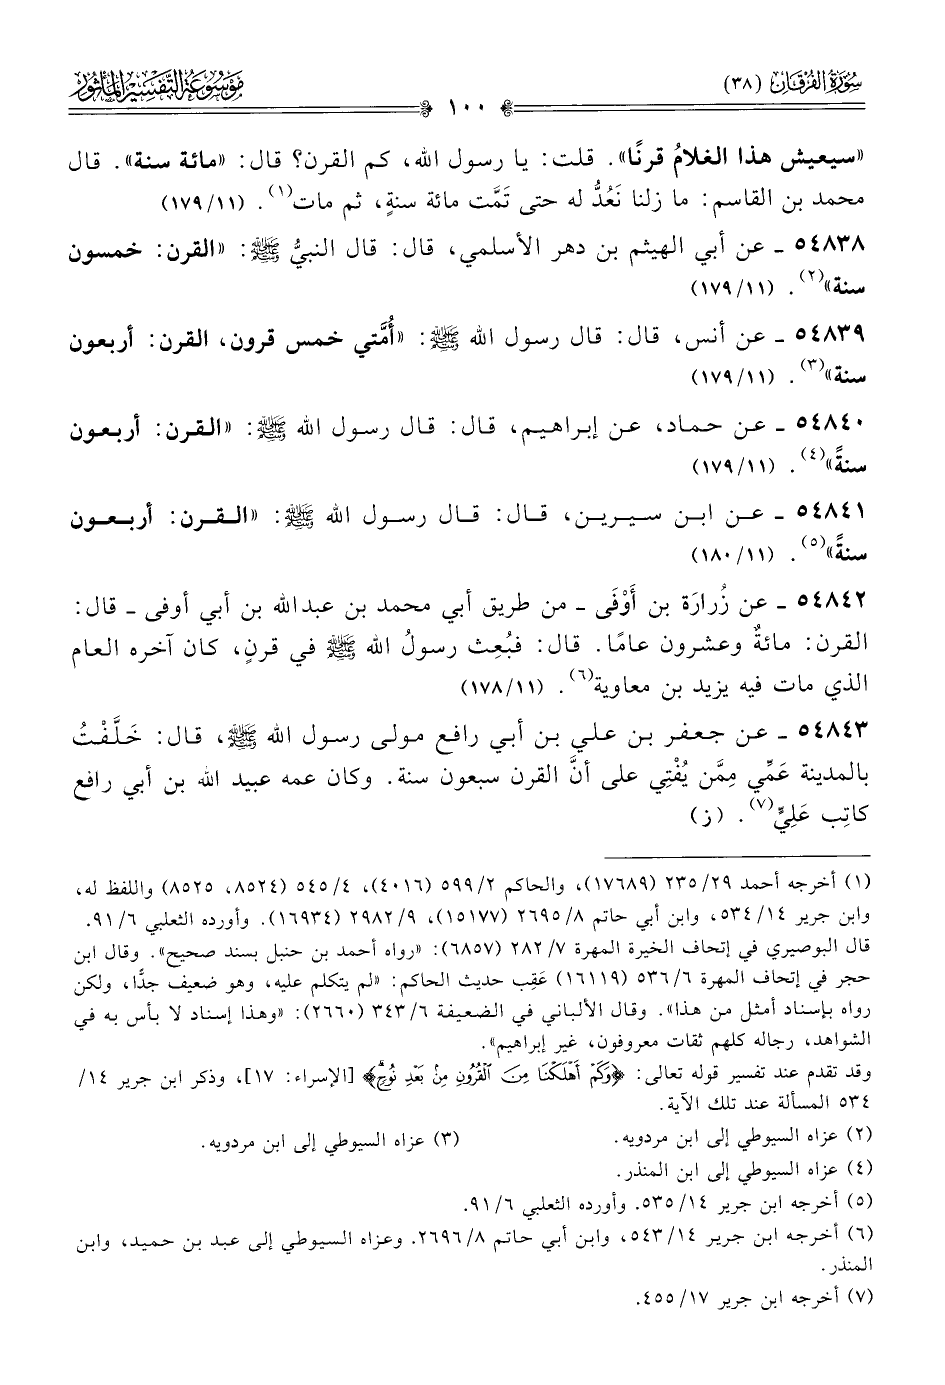 سُورَةُ الفُرْقَان (٣٨)
١٠٠
مَوْسُوعَة التَّفْسِير المَأْثُور
«سيعيش هذا الغلامُ قرنًا». قلت: يا رسول الله، كم القرن؟ قال: «مائة سنة». قال
محمد بن القاسم: ما زلنا نَعُدُّ له حتى تَمَّت مائة سنةٍ، ثم مات(١). (١١/١٧٩)
٥٤٨٣٨ ـ عن أبي الهيثم بن دهر الأسلمي، قال: قال النبيُّ ﷺ: «القرن: خمسون
سنة»(٢). (١١/١٧٩)
٥٤٨٣٩ ـ عن أنس، قال: قال رسول الله ﷺ: «أُمَّتي خمس قرون، القرن: أربعون
سنة»(٣). (١١/١٧٩)
٥٤٨٤٠ ـ عن حماد، عن إبراهيم، قال: قال رسول الله ﷺ: «القرن: أربعون
سنةً»(٤). (١١/١٧٩)
٥٤٨٤١ ـ عن ابن سيرين، قال: قال رسول الله ﷺ: «القرن: أربعون
سنةً»(٥). (١١/١٨٠)
٥٤٨٤٢ ـ عن زُرارَة بن أَوْفَى ـ من طريق أبي محمد بن عبدالله بن أبي أوفى ـ قال:
القرن: مائةٌ وعشرون عامًا. قال: فبُعِث رسولُ الله ﷺ في قرنٍ، كان آخره العام
الذي مات فيه يزيد بن معاوية(٦). (١١/١٧٨)
٥٤٨٤٣ ـ عن جعفر بن علي بن أبي رافع مولى رسول الله ﷺ، قال: خَلَّفْتُ
بالمدينة عَمِّي مِمَّن يُفْتِي على أنَّ القرن سبعون سنة. وكان عمه عبيد الله بن أبي رافع
كاتِب عَلِيٍّ(٧). (ز)
(١) أخرجه أحمد ٢٩/٢٣٥ (١٧٦٨٩)، والحاكم ٢/٥٩٩ (٤٠١٦)، ٤/٥٤٥ (٨٥٢٤، ٨٥٢٥) واللفظ له،
وابن جرير ١٤/٥٣٤، وابن أبي حاتم ٨/٢٦٩٥ (١٥١٧٧)، ٩/٢٩٨٢ (١٦٩٣٤). وأورده الثعلبي ٦/٩١.
قال البوصيري في إتحاف الخيرة المهرة ٧/٢٨٢ (٦٨٥٧): «رواه أحمد بن حنبل بسند صحيح». وقال ابن
حجر في إتحاف المهرة ٦/٥٣٦ (١٦١١٩) عَقِب حديث الحاكم: «لم يتكلم عليه، وهو ضعيف جدًّا، ولكن
رواه بإسناد أمثل من هذا». وقال الألباني في الضعيفة ٦/٣٤٣ (٢٦٦٠): «وهذا إسناد لا بأس به في
الشواهد، رجاله كلهم ثقات معروفون، غير إبراهيم».
وقد تقدم عند تفسير قوله تعالى: ﴿وَكَمْ أَهْلَكْنَا مِنَ ٱلْقُرُونِ مِنۢ بَعْدِ نُوحٍۗ﴾ [الإسراء: ١٧]، وذكر ابن جرير ١٤/
٥٣٤ المسألة عند تلك الآية.
(٢) عزاه السيوطي إلى ابن مردويه. (٣) عزاه السيوطي إلى ابن مردويه.
(٤) عزاه السيوطي إلى ابن المنذر.
(٥) أخرجه ابن جرير ١٤/٥٣٥. وأورده الثعلبي ٦/٩١.
(٦) أخرجه ابن جرير ١٤/٥٤٣، وابن أبي حاتم ٨/٢٦٩٦. وعزاه السيوطي إلى عبد بن حميد، وابن
المنذر.
(٧) أخرجه ابن جرير ١٧/٤٥٥.